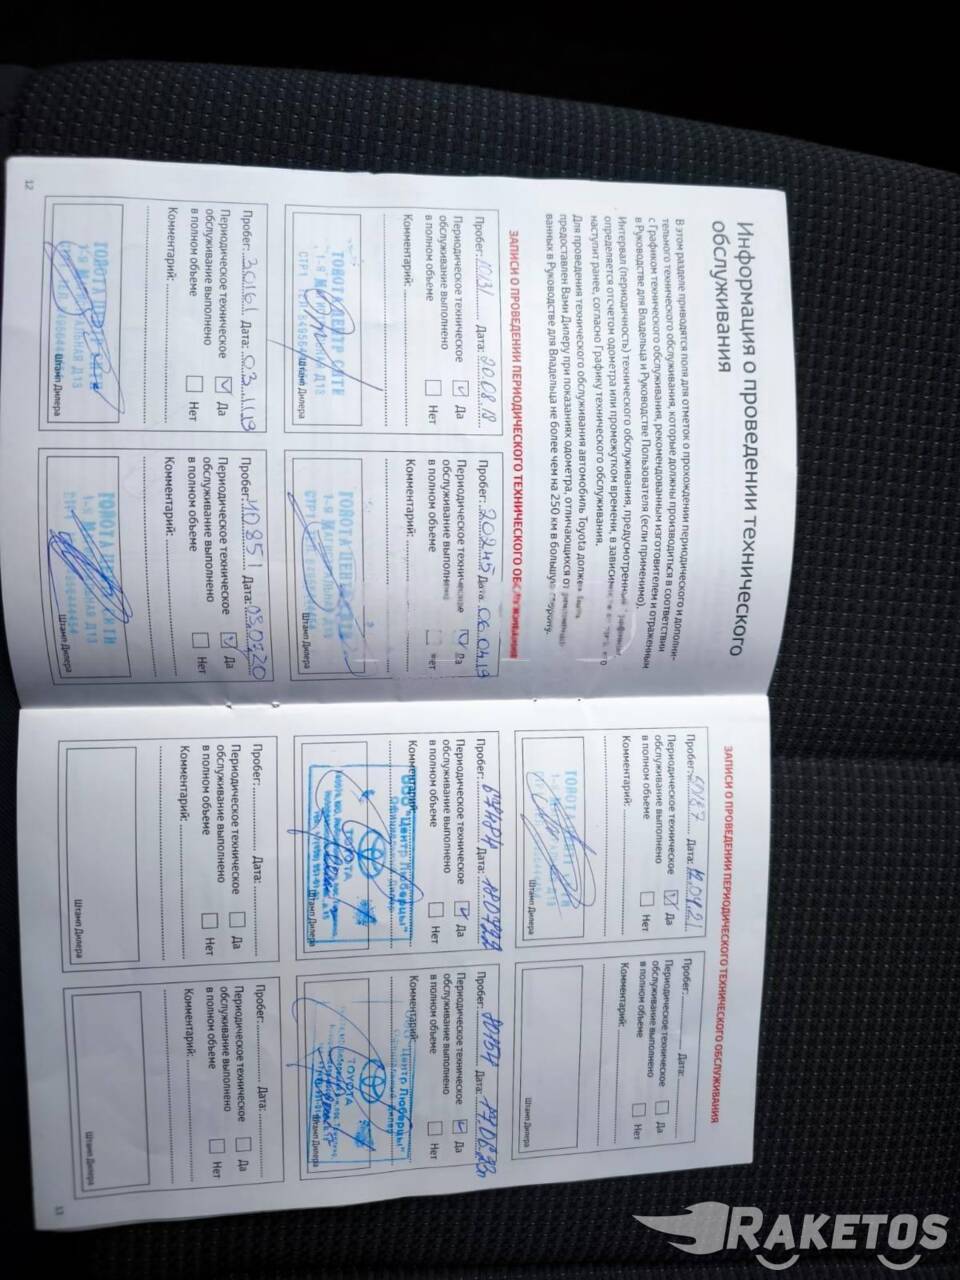 Информация о проведении технического
обслуживания
В этом разделе приводятся поля для отметок о прохождении периодического и дополни-
тельного технического обслуживания, которые должны производиться в соответствии
с Графиком технического обслуживания, рекомендованным изготовителем и отраженным
в Руководстве для Владельца и Руководстве Пользователя (если применимо).
Интервал (периодичность) технического обслуживания, предусмотренный Графиком
определяется отсчетом одометра или промежутком времени, в зависимости от того, что
наступит ранее, согласно Графику технического обслуживания.
Для проведения технического обслуживания автомобиль Toyota должен быть
предоставлен Вами Дилеру при показаниях одометра, отличающихся от
ванных в Руководстве для Владельца не более чем на 250 км в большую сторону.
ЗАПИСИ О ПРОВЕДЕНИИ ПЕРИОДИЧЕСКОГО ТЕХНИЧЕСКОГО ОБСЛУЖИВАНИЯ
Пробег: 10131 Дата: 20.08.18
Периодическое техническое
обслуживание выполнено
в полном объеме
Да
Нет
Комментарий:
СТР1
Штамп Дилера
Пробег: 20245 Дата: 06.04.19
Периодическое техническое
обслуживание выполнено
в полном объеме
Да
Нет
Комментарий:
СТР1
Штамп Дилера
Пробег: 30161 Дата: 03.11.19
Периодическое техническое
обслуживание выполнено
в полном объеме
Да
Нет
Комментарий:
Штамп Дилера
Пробег: 40851 Дата: 03.07.20
Периодическое техническое
обслуживание выполнено
в полном объеме
Да
Нет
Комментарий:
Штамп Дилера
12
ЗАПИСИ О ПРОВЕДЕНИИ ПЕРИОДИЧЕСКОГО ТЕХНИЧЕСКОГО ОБСЛУЖИВАНИЯ
Пробег: Дата: 12.04.21
Периодическое техническое
обслуживание выполнено
в полном объеме
Да
Нет
Комментарий:
Штамп Дилера
Пробег: Дата:
Периодическое техническое
обслуживание выполнено
в полном объеме
Да
Нет
Комментарий:
Штамп Дилера
Пробег: 67484 Дата: 18.07.22
Периодическое техническое
обслуживание выполнено
в полном объеме
Да
Нет
Комментарий:
ООО "Центр Люберцы"
Официальный Дилер
TOYOTA
Штамп Дилера
Пробег: 80154 Дата: 17.06.23г
Периодическое техническое
обслуживание выполнено
в полном объеме
Да
Нет
Комментарий:
"Центр Люберцы"
TOYOTA
Штамп Дилера
Пробег: Дата:
Периодическое техническое
обслуживание выполнено
в полном объеме
Да
Нет
Комментарий:
Штамп Дилера
Пробег: Дата:
Периодическое техническое
обслуживание выполнено
в полном объеме
Да
Нет
Комментарий:
Штамп Дилера
13
RAKETOS